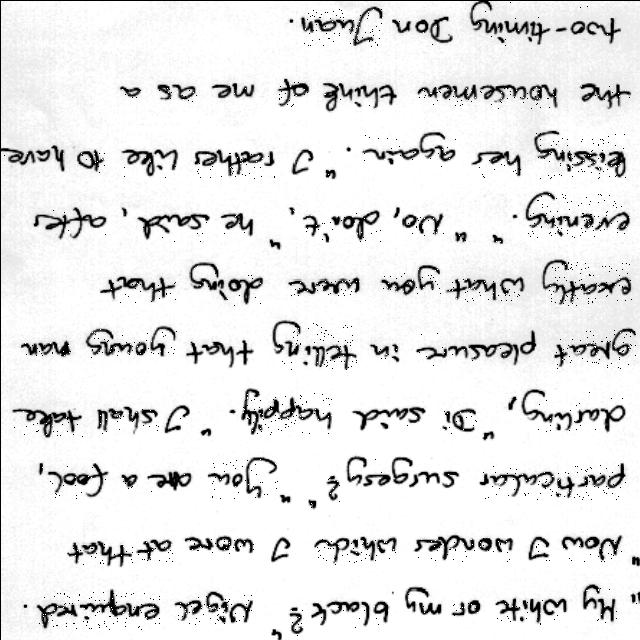 "My white or my black?" Nigel enquired.
"Now I wonder which I wore at that
particular surgery?" "You are a fool,
darling," Di said happily. "I shall take
great pleasure in telling that young man
exactly what you were doing that
evening." "No, don't," he said, after
kissing her again. "I rather like to have
the housemen think of me as a
two-timing Don Juan.